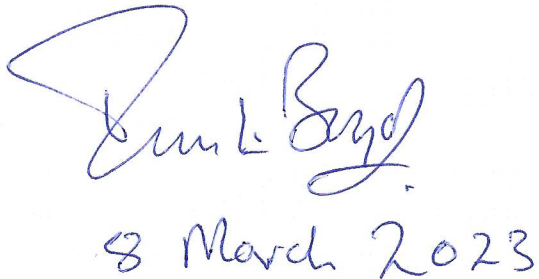 Boyd
8 March 2023